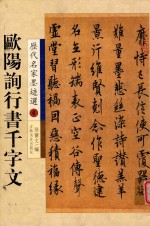 靡恃己長信使可覆器欲
難量墨悲絲染詩讚羔羊
景行維賢剋念作聖德建
名立形端表正空谷傳聲虛
堂習聽禍因惡積福緣
歷代名家墨迹選
歐陽詢行書千字文